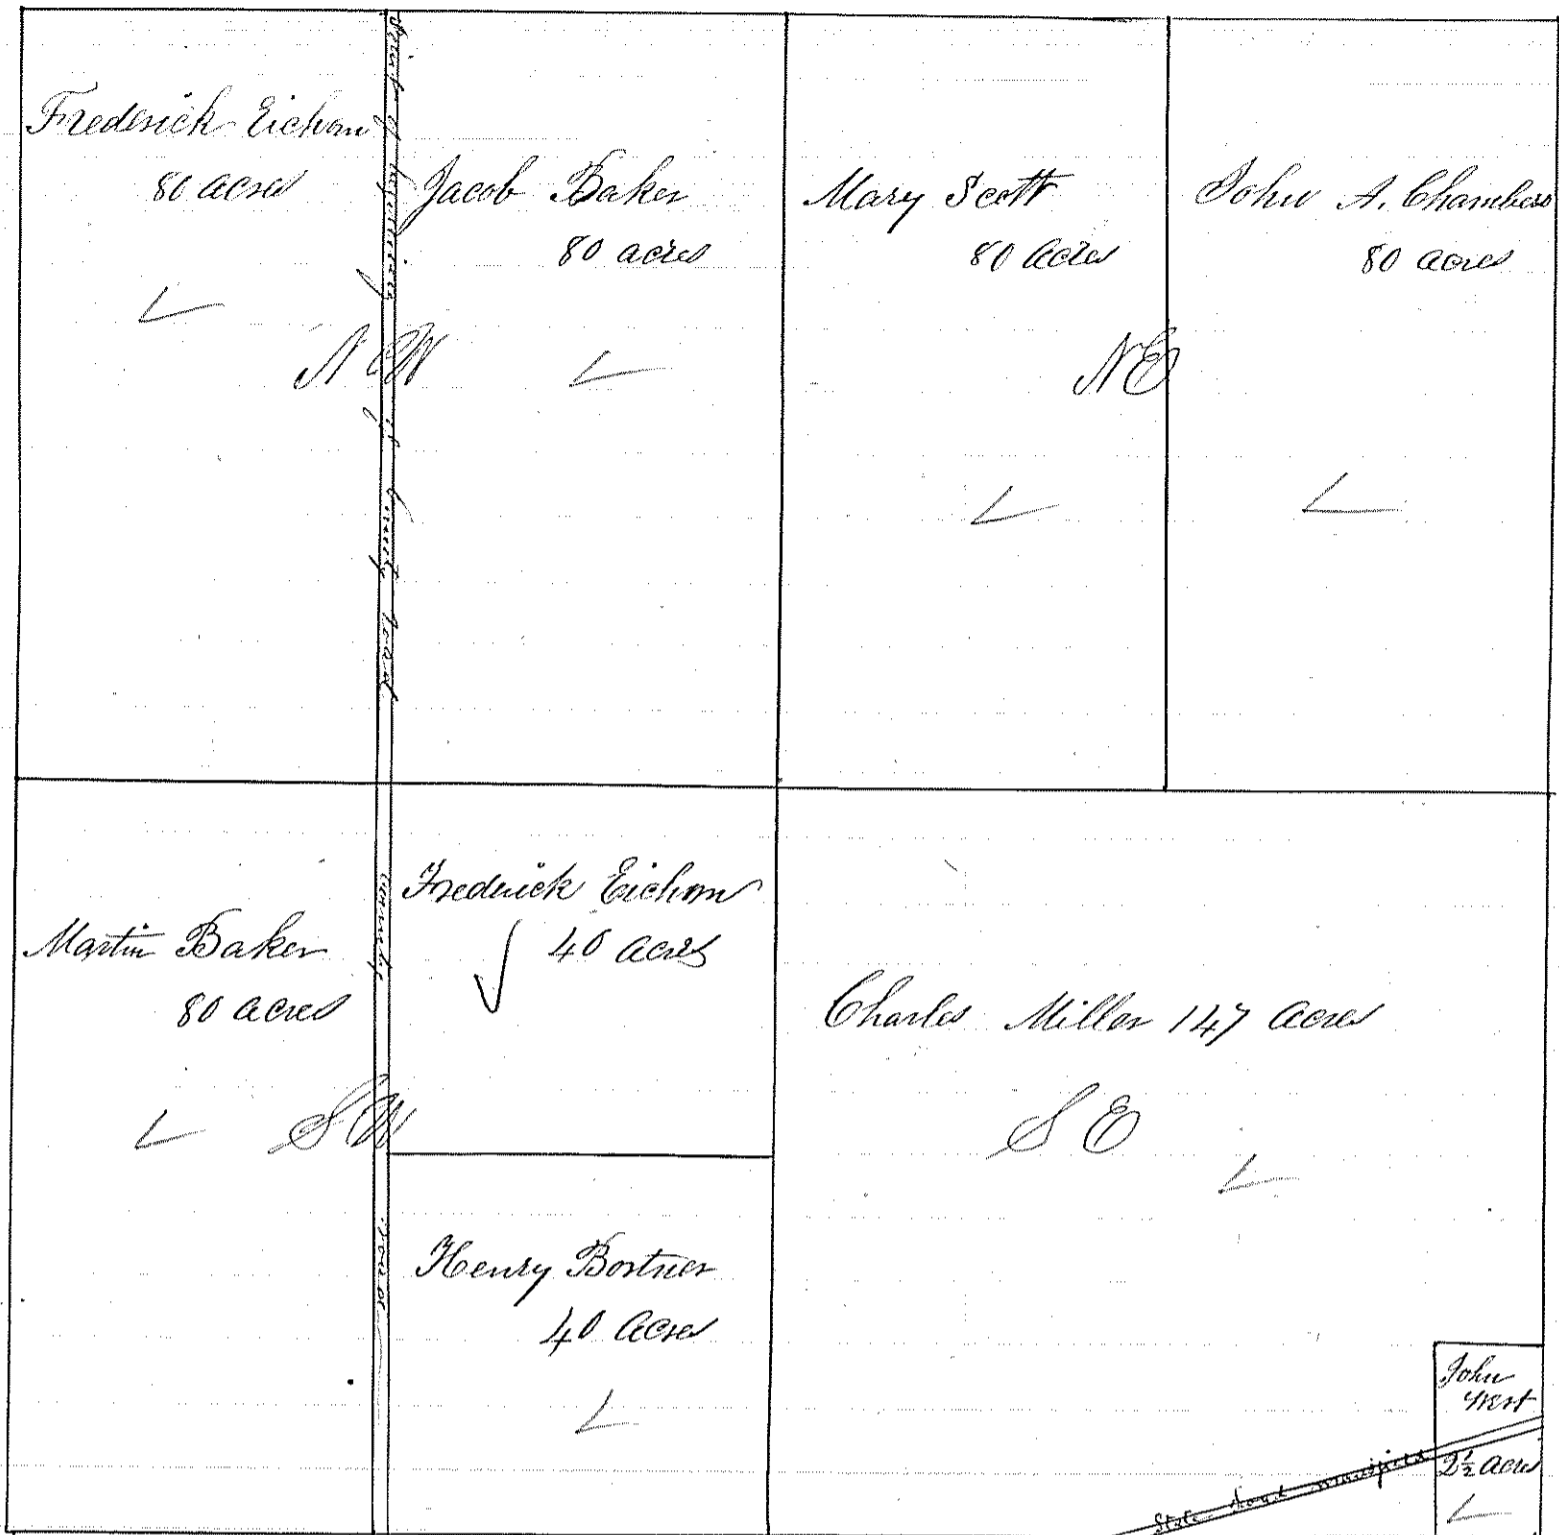 Frederick Eichom
80 acres
Jacob Baker
80 acres
Mary Scott
80 acres
John A. Chambers
80 acres
N W
N E
county road
Martin Baker
80 acres
S W
Frederick Eichom
40 acres
county
road
Henry Bortner
40 acres
Charles Miller 147 acres
S E
John
West
2½ acres
State Road